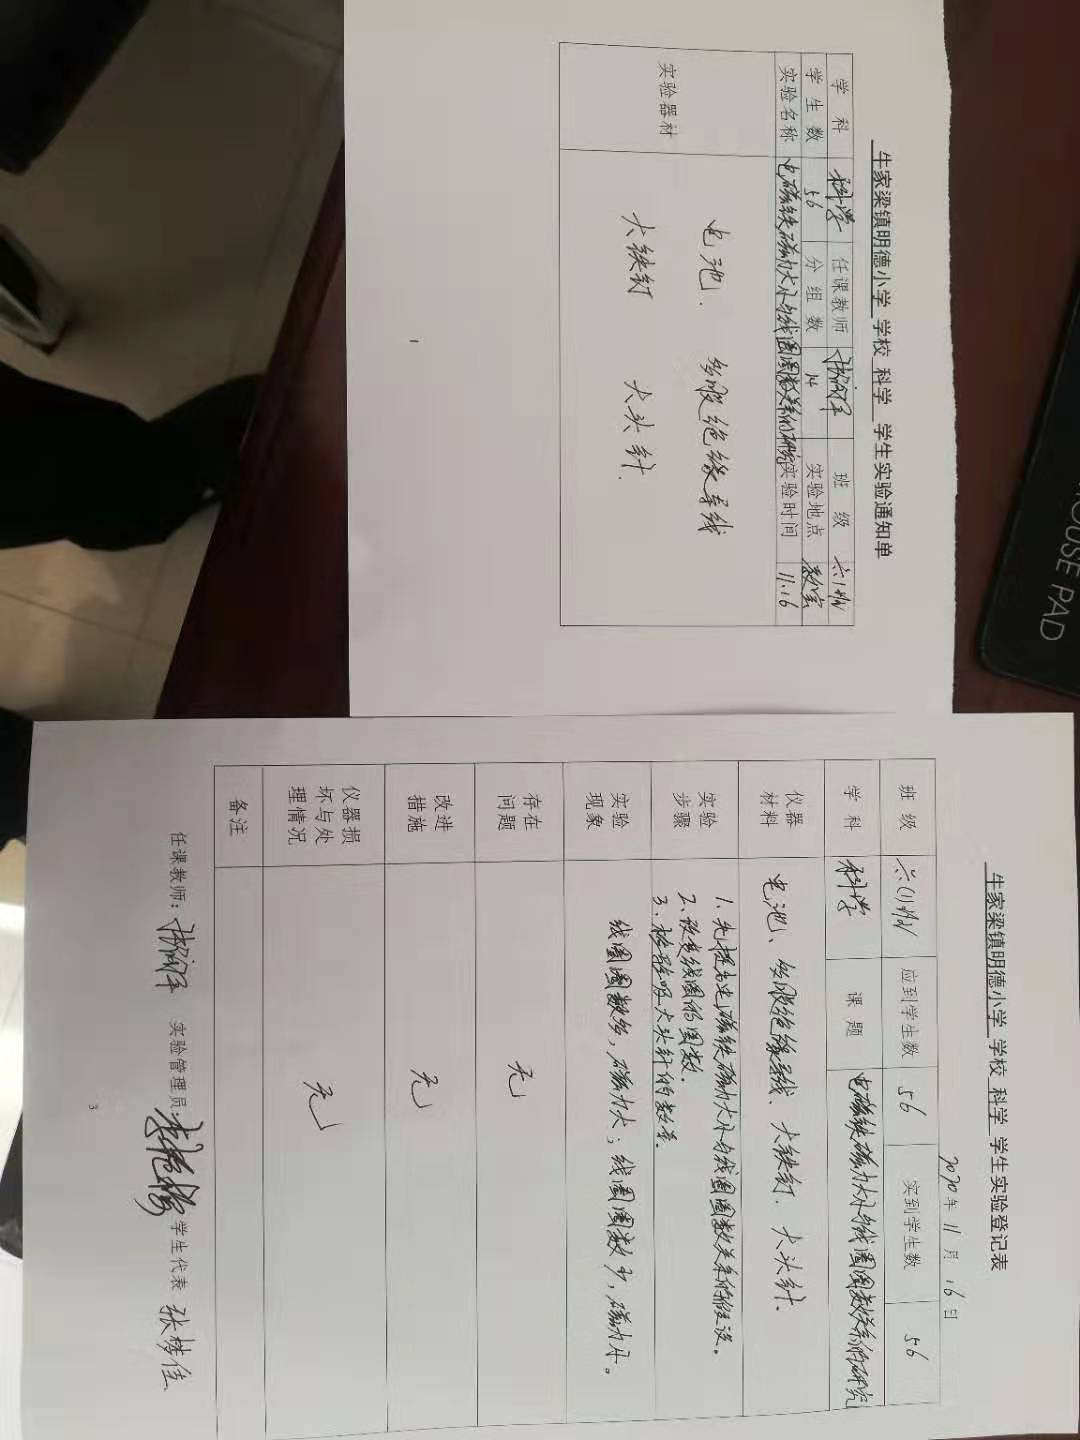 牛家梁镇明德小学 学校 科学 学生实验通知单
学科 科学 任课教师 班级 六(1)班
学生数 56 分组数 14 实验地点 教室
实验名称 电磁铁磁力大小与线圈圈数关系的研究 实验时间 11.16
实验器材
电池、 多股绝缘导线
大铁钉 大头针.
1
牛家梁镇明德小学 学校 科学 学生实验登记表
2020年 11月 16日
班级 六(1)班 应到学生数 56 实到学生数 56
学科 科学 课题 电磁铁磁力大小与线圈圈数关系的研究
仪器材料 电池、多股绝缘导线、大铁钉、大头针.
实验步骤 1.先提出电磁铁磁力大小与线圈圈数关系的假设。
2.改变线圈的圈数.
3.检验吸大头针的数量.
实验现象 线圈圈数多,磁力大;线圈圈数少,磁力小。
存在问题 无
改进措施 无
仪器损坏与处理情况 无
备注
任课教师: 实验管理员: 学生代表 张梦佳
3
MOUSE PAD